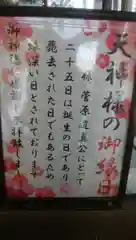 天神様の御縁日
菅原道真公にとって
二十五日は誕生の日であり
薨去された日でもあるため
縁深い日とされております